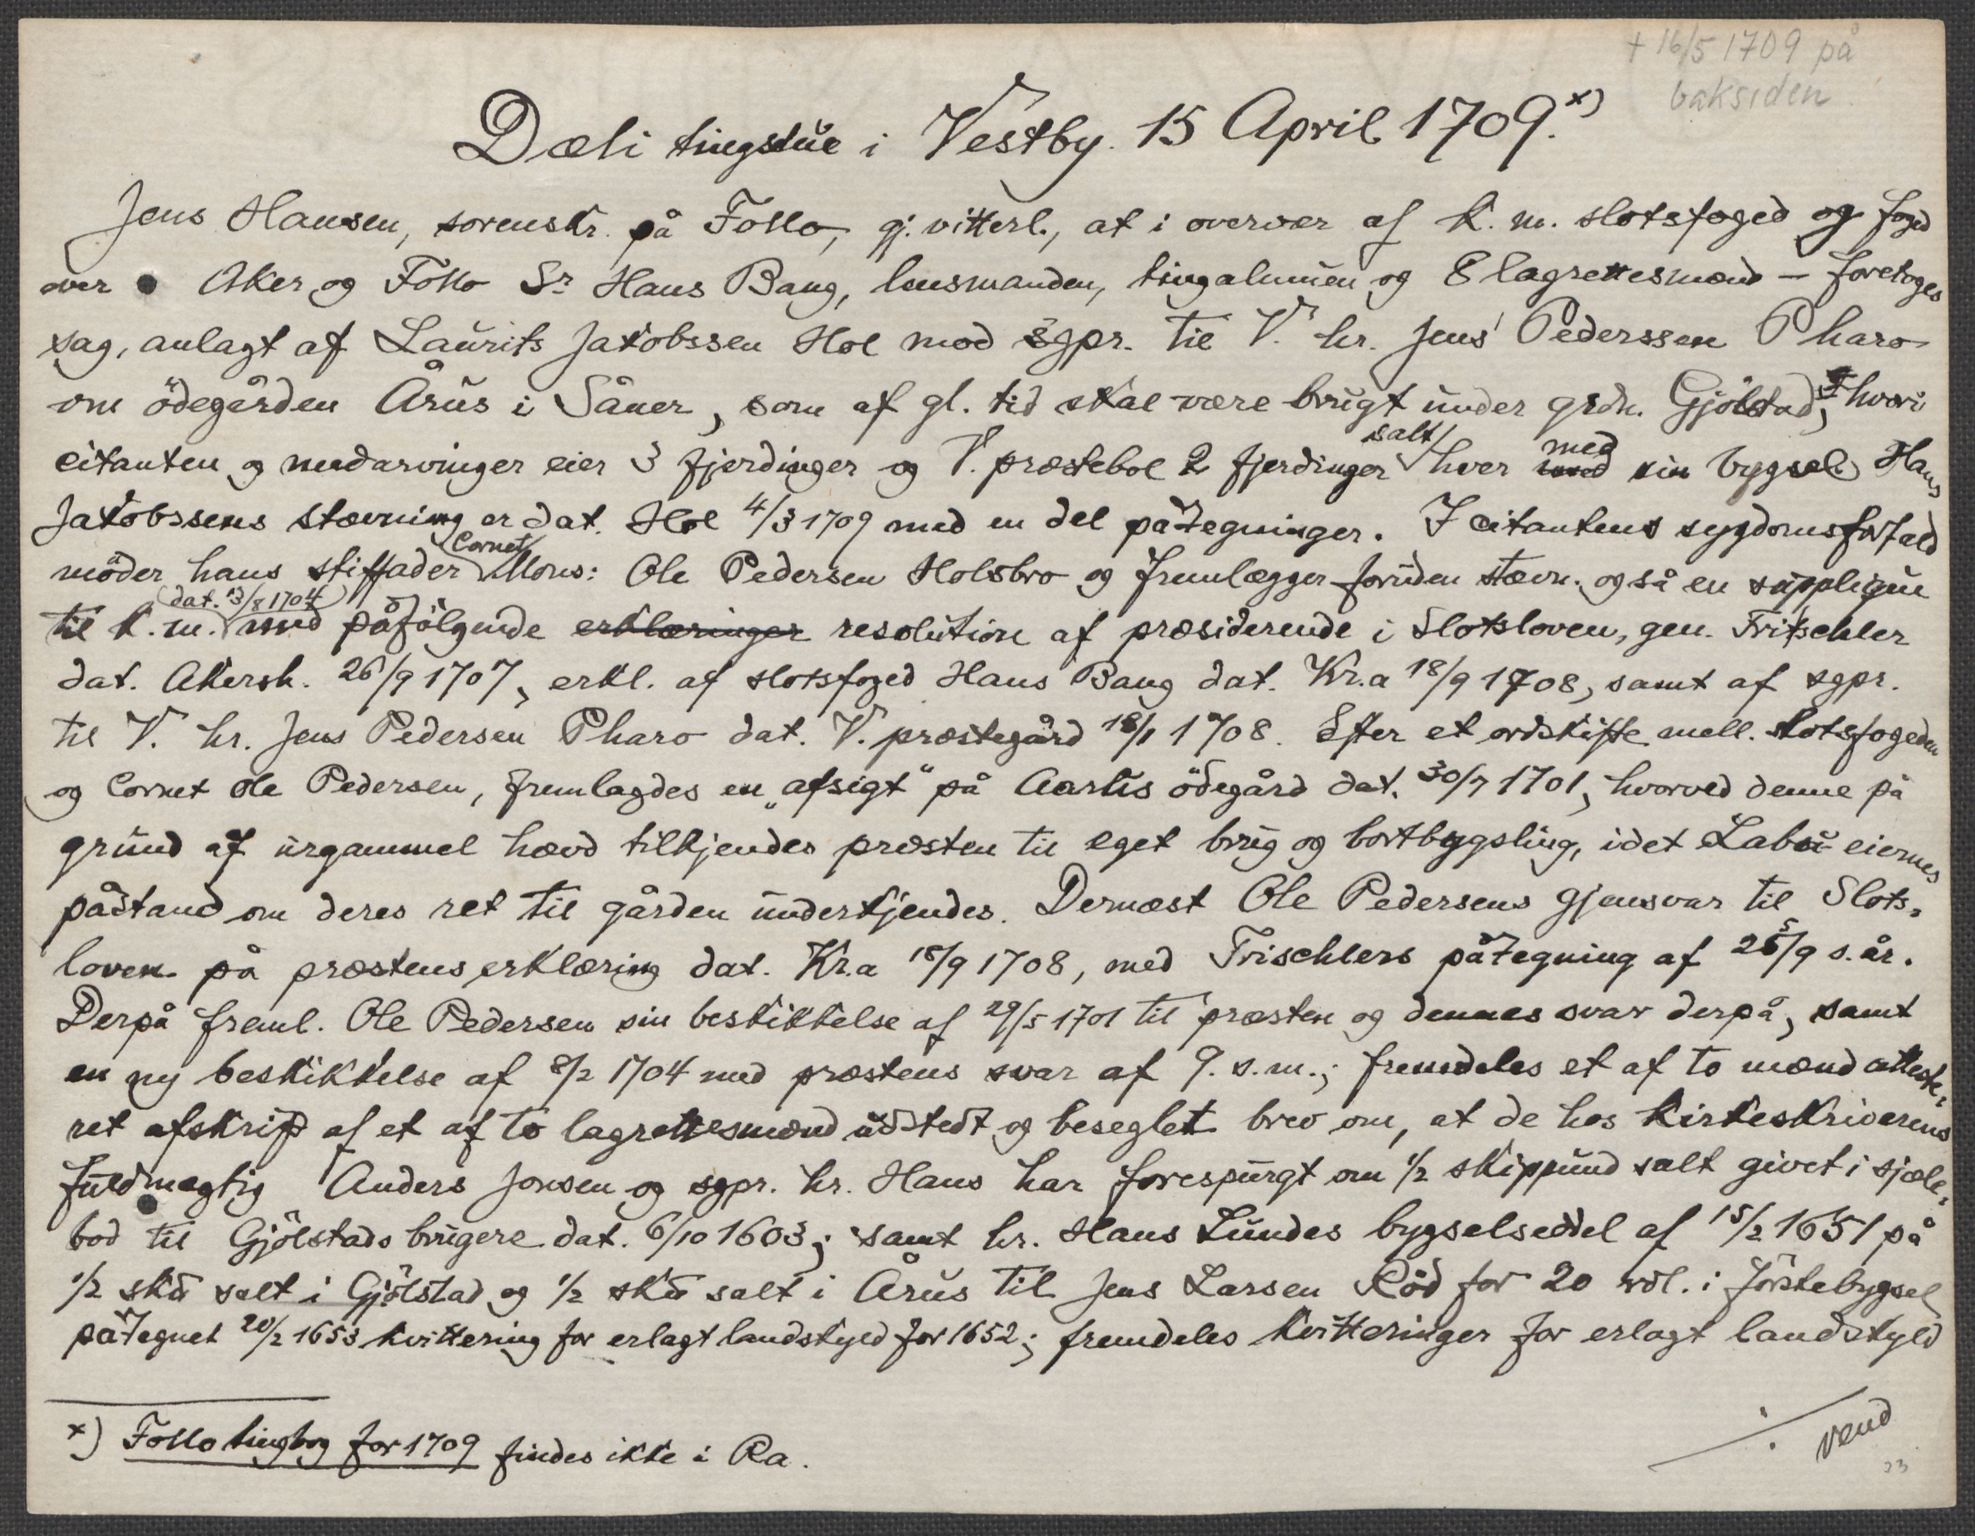 + 16/5 1709 på
baksiden
Dæli tingstue i Vestby. 15 April 1709.x)
Jens Hansen, sorenskr. på Follo, gj. vitterl., at i overvær af k. m. slotsfoged og foged
over Aker og Follo Sr. Hans Bang, lensmanden, tingalmuen og 8 lagrettesmænd – foretoges
sag, anlagt af Laurits Jakobssen Hol mod sgpr. til V. hr. Jens Pederssen Pharo
om ödegården Årus i Såner, som af gl. tid skal være brugt under grdn. Gjölstad, hvori
citanten og medarvinger eier 3 fjerdinger og V. præstebol 2 fjerdinger salt hver med sin bygsel. Hans
Jakobssens stævning er dat. Hol 4/3 1709 med en del påtegninger. I citantens sygdomsforfald
möder hans stiffader Cornet Mons: Ole Pedersen Holsbro og fremlægger foruden stævn. også en supplique
til k. m. dat. 13/8 1704 med påfölgende erklæringer resolution af præsiderende i Slotsloven, gen. Tritschler
dat. Akersh. 26/9 1707, erkl. af slotsfoged Hans Bang dat. Kr.a 18/9 1708, samt af sgpr.
til V. hr. Jens Pedersen Pharo dat. V. præstegård 18/1 1708. Efter et ordskifte mell. slotsfogeden
og Cornet Ole Pedersen, fremlagdes en „afsigt" på Aarus ödegård dat. 30/7 1701, hvorved denne på
grund af urgammel hævd tilkjendes præsten til eget brug og bortbygsling, idet Labo eiernes
påstand om deres ret til gården underkjendes. Dernæst Ole Pedersens gjensvar til Slots-
loven på præstens erklæring dat. Kr.a 18/9 1708, med Trischlers påtegning af 25/9 s. år.
Derpå freml. Ole Pedersen sin beskikkelse af 29/5 1701 til præsten og dennes svar derpå, samt
en ny beskikkelse af 8/2 1704 med præstens svar af 9. s. m.; fremdeles et af to mænd atteste-
ret afskrift af et af to lagrettesmænd udstedt og beseglet brev om, at de hos kirkeskriverens
fuldmægtig Anders Jonsen og sgpr. hr. Hans har forespurgt om 1/2 skippund salt givet i sjæle-
bod til Gjölstads brugere dat. 6/10 1603; samt hr. Hans Lundes bygselseddel af 15/2 1651 på
1/2 sk℔ salt i Gjölstad og 1/2 sk℔ salt i Årus til Jens Larsen Röd for 20 rdl. i förstebygsel
påtegnet 20/2 1653 kvittering for erlagt landskyld for 1652; fremdeles kvitteringer for erlagt landskyld
x) Follo tingbog for 1709 findes ikke i Ra.
vend
23